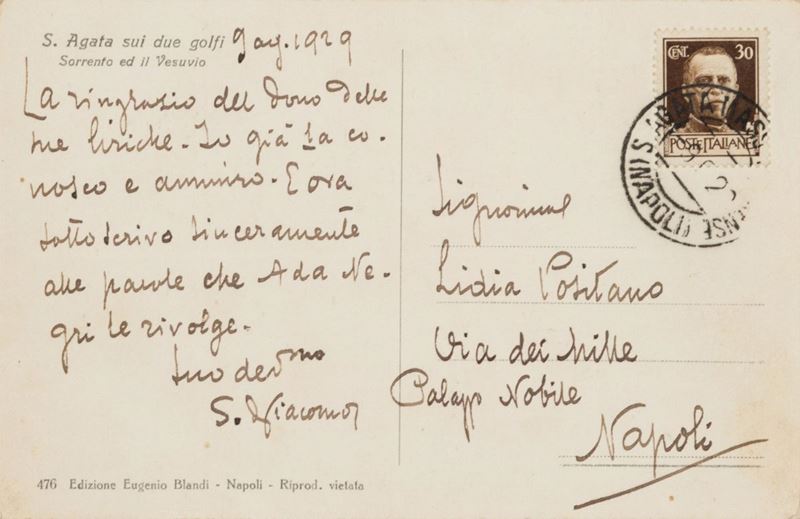 S. Agata sui due golfi 9 ag. 1929
Sorrento ed il Vesuvio
La ringrazio del dono delle
sue liriche. Io già La co-
nosco e ammiro. E ora
sottoscrivo sinceramente
alle parole che Ada Ne-
gri le rivolge.
Suo dev.mo
S. di Giacomo
476 Edizione Eugenio Blandi - Napoli - Riprod. vietata
CENT. 30
POSTE ITALIANE
S. AGATA MASS ENSE (NAPOLI)
Signorina
Lidia Positano
Via dei Mille
Palazzo Nobile
Napoli